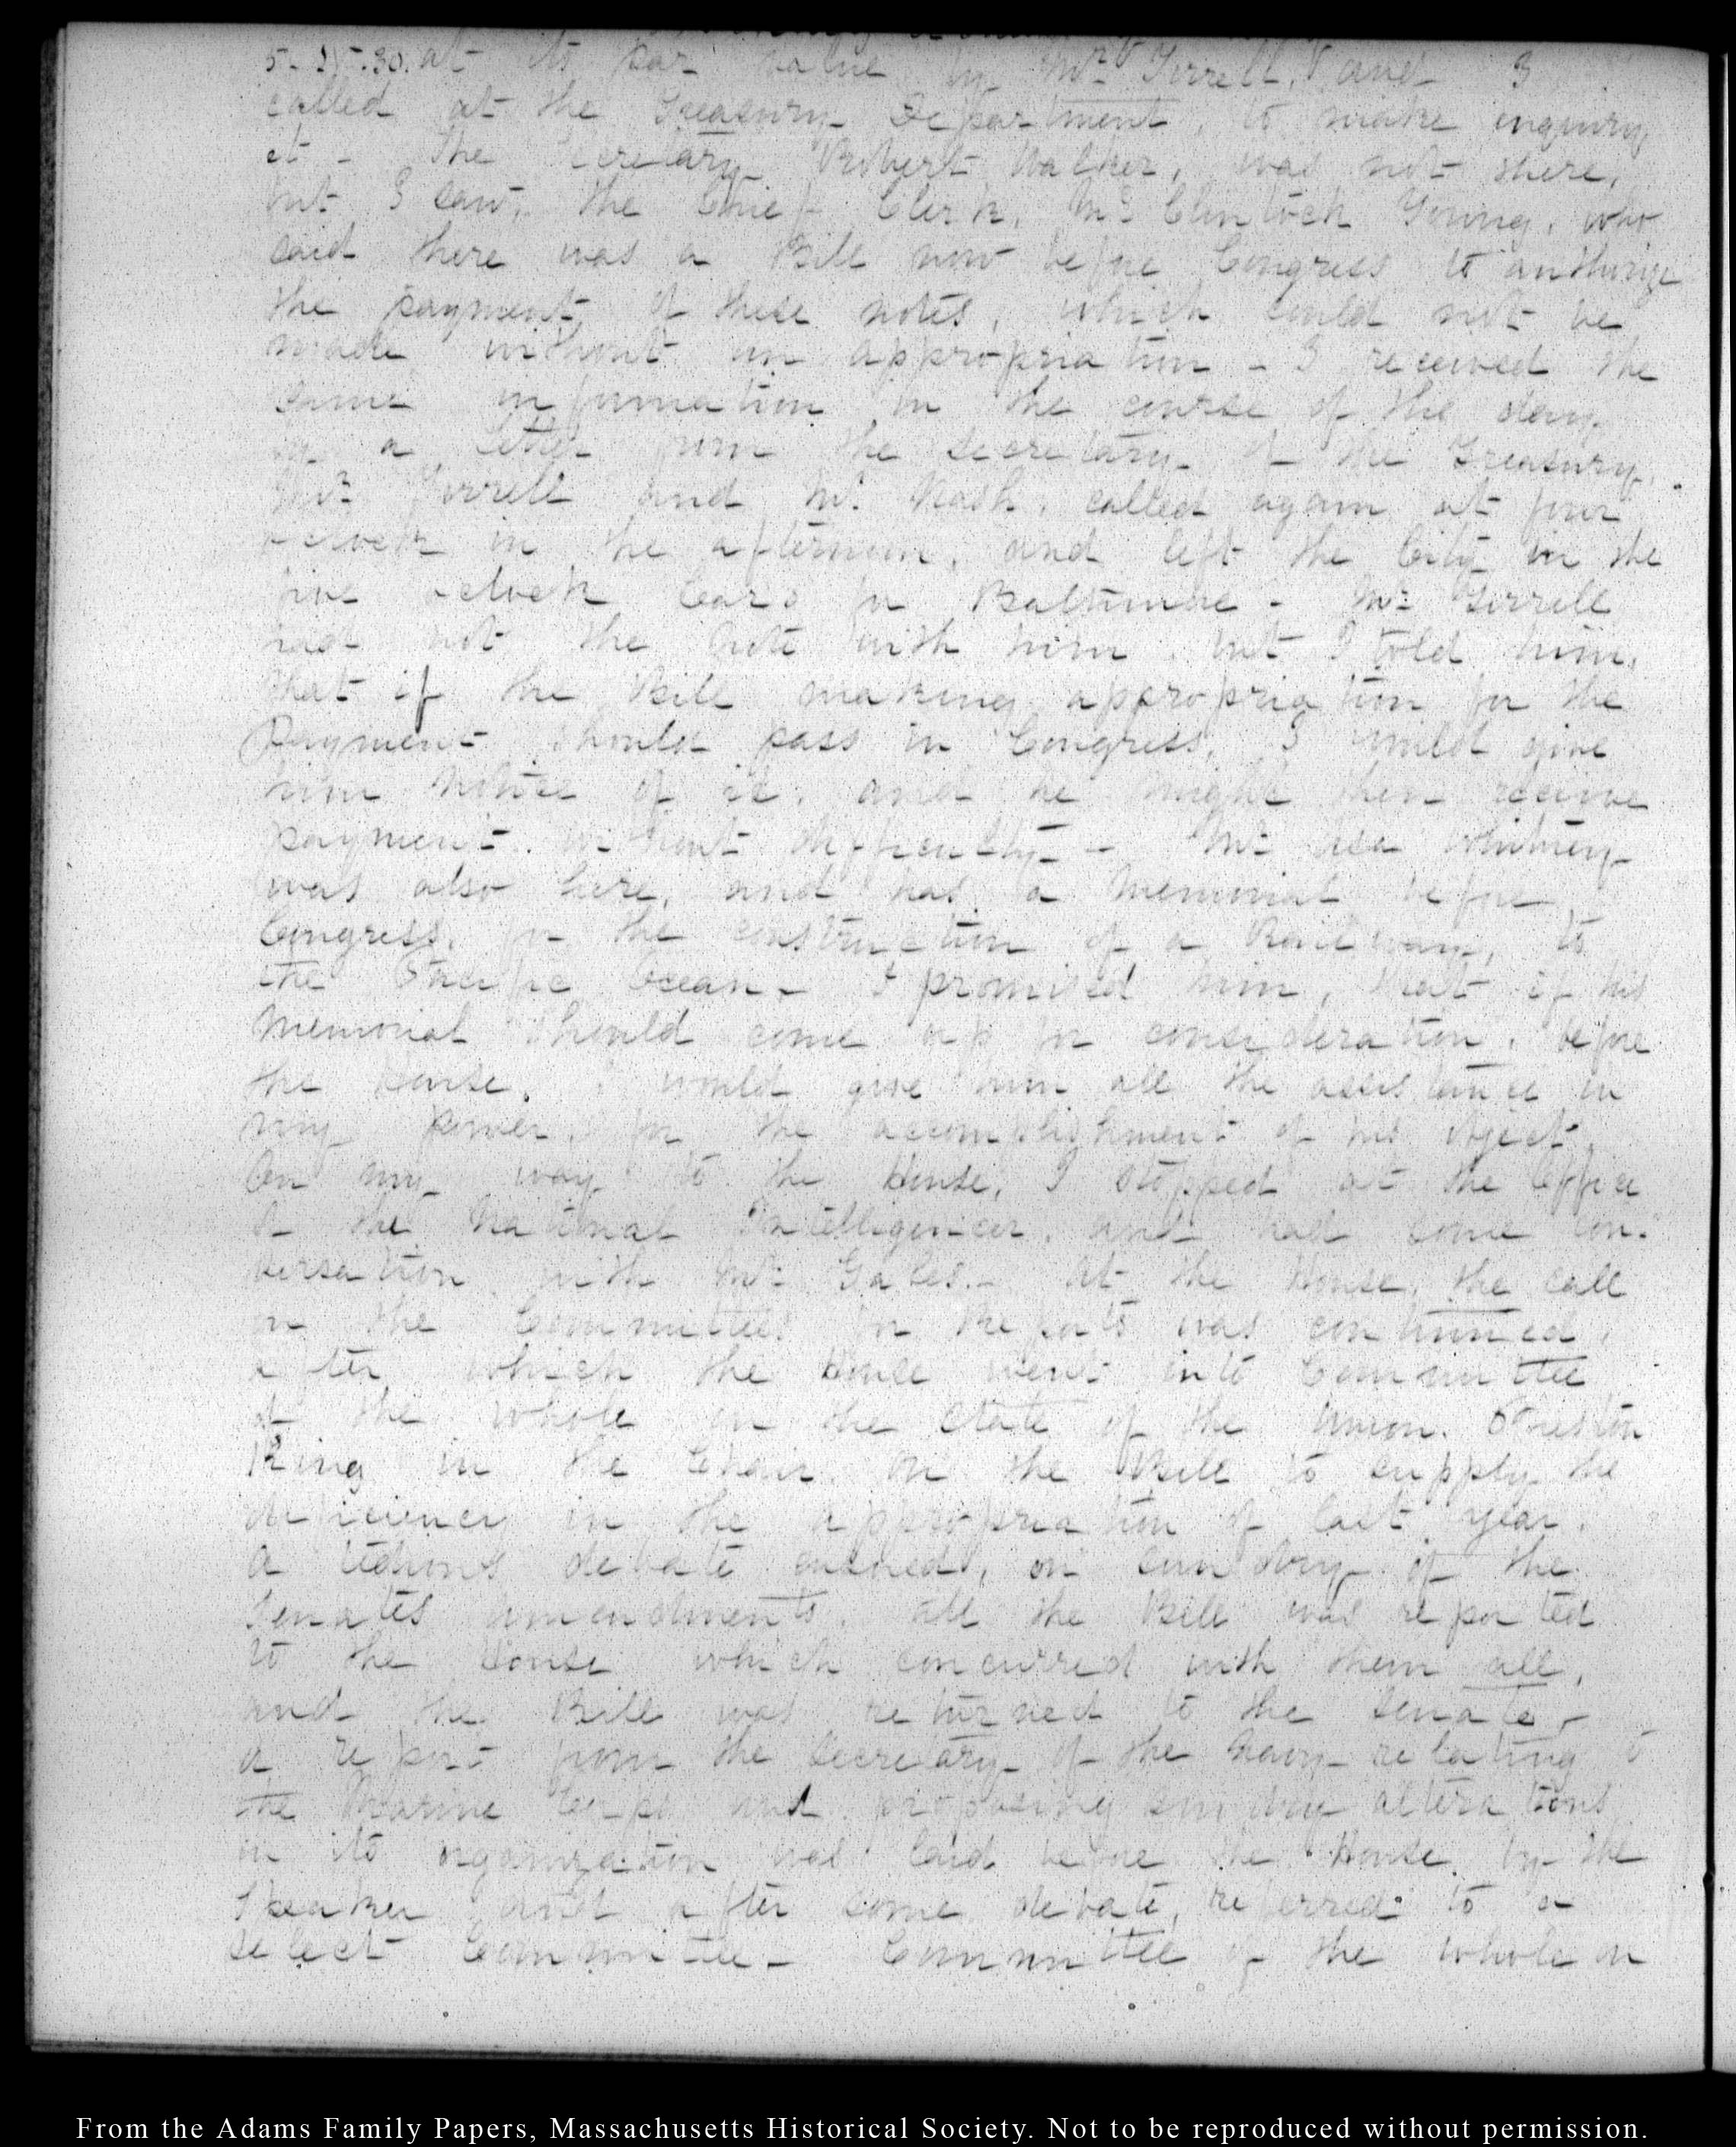 5-15-30. at its par value by Mr. Tirrell, and I
called at the Treasury Department, to make inquiry
at - The Secretary Robert Walker, was not there,
but I saw, the Chief Clerk, Mc. Clintock Young, who
said there was a Bill now before Congress to authorize
the payment of these notes, which could not be
made without an appropriation - I received the
same information in the course of the day
by a letter from the Secretary of the Treasury.
Mr. Tirrell and Mr. Nash, called again at four
o'clock in the afternoon, and left the City in the
five o'clock Cars for Baltimore - Mr. Tirrell
had not the Note with him, but I told him,
that if the Bill making appropriation for the
Payment should pass in Congress, I would give
him notice of it, and he might then receive
payment, without difficulty - Mr. Asa Whitney
was also here, and has a Memorial before
Congress, for the construction of a Railway, to
the Pacific Ocean - I promised him, that if his
Memorial should come up for consideration, before
the House, I would give him all the assistance in
my power, for the accomplishment of his object.
On my way to the House, I stopped at the Office
of the National Intelligencer, and had some con-
versation with Mr. Gales. - At the House, the call
on the Committees for Reports was continued,
after which the House went into Committee
of the whole on the state of the Union. Preston
King in the Chair, on the Bill to supply the
deficiency in the appropriation of last year.
A tedious debate ensued, on sundry of the
Senates amendments. All the Bill was reported
to the House which concurred with them all,
and the Bill was returned to the Senate -
A report from the Secretary of the Navy relating to
the Marine Corps and proposing sundry alterations
in its organization was laid before the House by the
Speaker and after some debate, referred to a
select Committee - Committee of the whole on
From the Adams Family Papers, Massachusetts Historical Society. Not to be reproduced without permission.